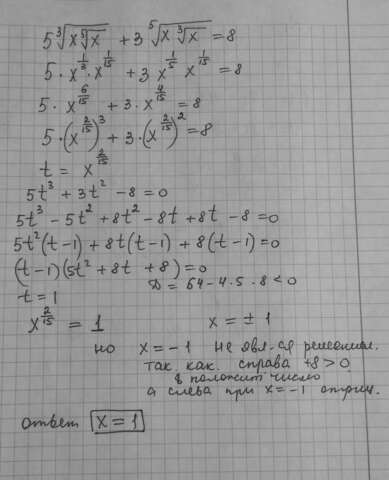 5∛(x⁵√x) + 3⁵√(x∛x) = 8
5 · x^(1/3) · x^(1/15) + 3 x^(1/5) x^(1/15) = 8
5 · x^(6/15) + 3 · x^(4/15) = 8
5 · (x^(2/15))³ + 3 · (x^(2/15))² = 8
t = x^(2/15)
5t³ + 3t² - 8 = 0
5t³ - 5t² + 8t² - 8t + 8t - 8 = 0
5t²(t-1) + 8t(t-1) + 8(t-1) = 0
(t-1)(5t² + 8t + 8) = 0
D = 64 - 4 · 5 · 8 < 0
t = 1
x^(2/15) = 1 x = ± 1
но x = -1 не явл-ся решением.
так как. справа +8 > 0
положит число
а слева при x = -1 отриц.
ответ x = 1